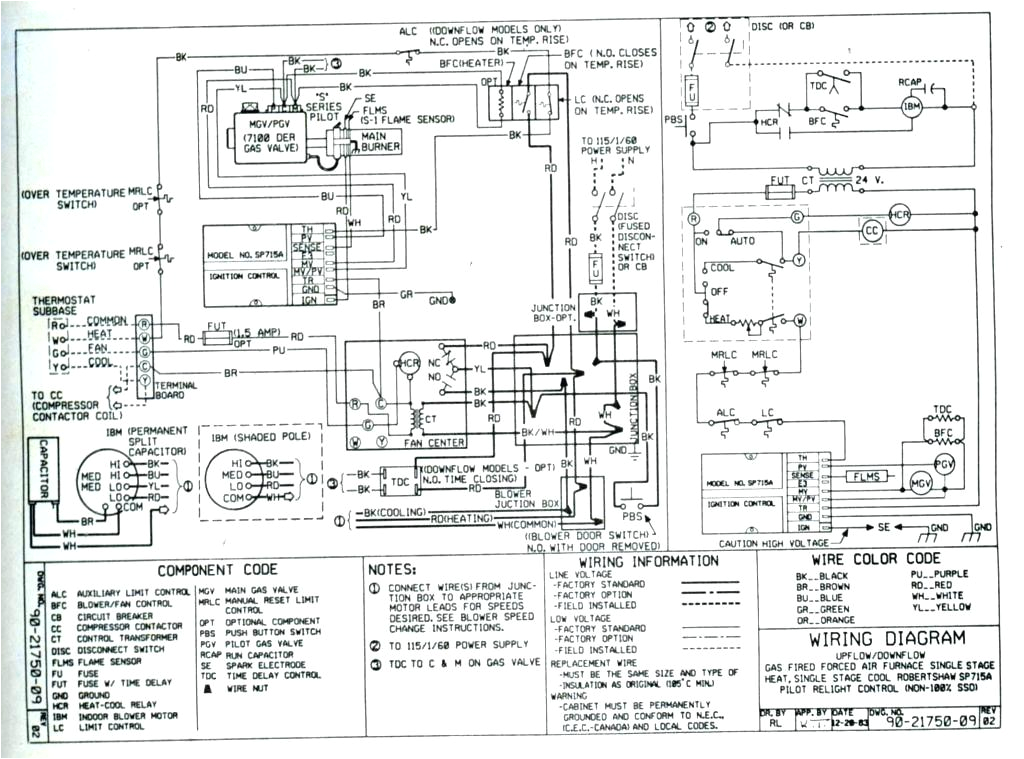 ALC ((DOWNFLOW MODELS ONLY)
N.C. OPENS ON TEMP. RISE)
BFC (N.O. CLOSES
ON TEMP. RISE)
BFC(HEATER)
OPT
LC (N.C. OPENS
ON TEMP. RISE)
BK
BK
BK
BK
BK
BK
BK
③
BU
YL
RD
"S"
SERIES
PILOT
SE
FLMS
(S-1 FLAME SENSOR)
MAIN
BURNER
MGV/PGV
(7100 DER
GAS VALVE)
BU
BU
RD
RD
WH
YL
RD
BK
(OVER TEMPERATURE
SWITCH)
MRLC
OPT
(OVER TEMPERATURE
SWITCH)
MRLC
OPT
MODEL NO. SP715A
IGNITION CONTROL
TH
PV
SENSE
E3
MV
MV/PV
TR
GND
IGN
GR
GND
BR
RD
RD
TO 115/1/60
POWER SUPPLY
H N
DISC
(FUSED
DISCON-
NECT
SWITCH)
OR CB
BK
FU
BK
WH
JUNCTION
BOX-OPT.
THERMOSTAT
SUBBASE
R COMMON R
W HEAT W
G FAN G
Y COOL C
Y
TERMINAL
BOARD
TO CC
(COMPRESSOR
CONTACTOR COIL)
RD
FUT
(1.5 AMP)
OPT
RD
PU
BR
HCR
NC
NO
RD
YL
BK
BK
R C
G
W Y
CT
FAN CENTER
RD
RD
BK/WH
WH
BK
BK
JUNCTION BOX
GND
CAPACITOR
IBM (PERMANENT
SPLIT
CAPACITOR)
HI BK
MED HI BU
MED LO YL
LO RD
COM
①
BR
WH
WH
IBM (SHADED POLE)
HI BK
MED BU
LO RD
COM WH
①
③
BK
BK
TDC
RD
(DOWNFLOW MODELS - OPT)
N.O. TIME CLOSING)
BK
WH
BLOWER
JUCTION BOX
①
BK(COOLING)
RD(HEATING)
WH(COMMON)
PBS
((BLOWER DOOR SWITCH)
N.O. WITH DOOR REMOVED)
②
DISC (OR CB)
FU
PBS
TDC
BFC
RCAP
IBM
HCR
FUT
CT
24 V.
R
G
HCR
CC
ON
AUTO
COOL
OFF
HEAT
Y
W
MRLC MRLC
ALC LC
TDC
BFC
PGV
MGV
FLMS
MODEL NO. SP715A
IGNITION CONTROL
TH
PV
SENSE
E3
MV
MV/PV
TR
GND
IGN
SE
GND
GND
CAUTION HIGH VOLTAGE
DWG. NO. 90-21750-09 REV 02
COMPONENT CODE
ALC AUXILIARY LIMIT CONTROL
BFC BLOWER/FAN CONTROL
CB CIRCUIT BREAKER
CC COMPRESSOR CONTACTOR
CT CONTROL TRANSFORMER
DISC DISCONNECT SWITCH
FLMS FLAME SENSOR
FU FUSE
FUT FUSE W/ TIME DELAY
GND GROUND
HCR HEAT-COOL RELAY
IBM INDOOR BLOWER MOTOR
LC LIMIT CONTROL
MGV MAIN GAS VALVE
MRLC MANUAL RESET LIMIT
CONTROL
OPT OPTIONAL COMPONENT
PBS PUSH BUTTON SWITCH
PGV PILOT GAS VALVE
RCAP RUN CAPACITOR
SE SPARK ELECTRODE
TDC TIME DELAY CONTROL
WIRE NUT
NOTES:
① CONNECT WIRE(S) FROM JUNC-
TION BOX TO APPROPRIATE
MOTOR LEADS FOR SPEEDS
DESIRED. SEE BLOWER SPEED
CHANGE INSTRUCTIONS.
② TO 115/1/60 POWER SUPPLY
③ TDC TO C & M ON GAS VALVE
WIRING INFORMATION
LINE VOLTAGE
-FACTORY STANDARD
-FACTORY OPTION
-FIELD INSTALLED
LOW VOLTAGE
-FACTORY STANDARD
-FACTORY OPTION
-FIELD INSTALLED
REPLACEMENT WIRE
-MUST BE THE SAME SIZE AND TYPE OF
-INSULATION AS ORIGINAL (105°C MIN.)
WARNING
-CABINET MUST BE PERMANENTLY
GROUNDED AND CONFORM TO N.E.C.,
(C.E.C.-CANADA) AND LOCAL CODES.
WIRE COLOR CODE
BK__BLACK
BR__BROWN
BU__BLUE
GR__GREEN
OR__ORANGE
PU__PURPLE
RD__RED
WH__WHITE
YL__YELLOW
WIRING DIAGRAM
UPFLOW/DOWNFLOW
GAS FIRED FORCED AIR FURNACE SINGLE STAGE
HEAT, SINGLE STAGE COOL ROBERTSHAW SP715A
PILOT RELIGHT CONTROL (NON-100% SSO)
DR. BY RL
APP. BY
DATE 12-20-83
DWG. NO. 90-21750-09
REV 02